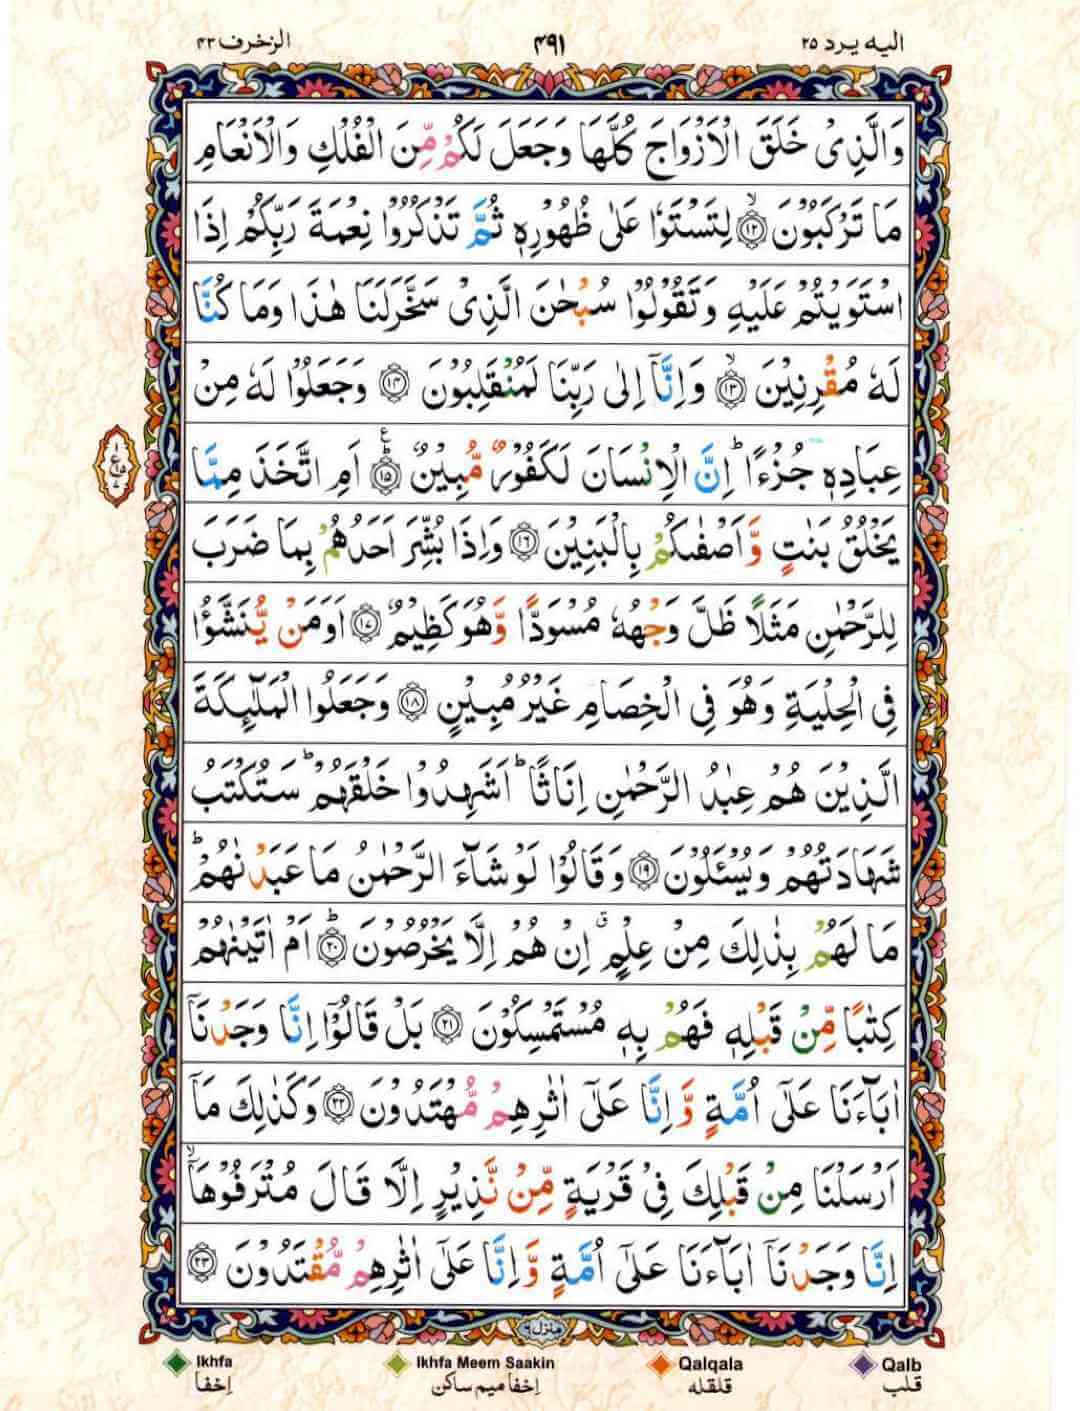 الیه یرد ۲۵
۴۹۱
الزخرف ۴۳
وَالَّذِیْ خَلَقَ الْاَزْوَاجَ كُلَّهَا وَجَعَلَ لَكُمْ مِّنَ الْفُلْكِ وَالْاَنْعَامِ
مَا تَرْكَبُوْنَ ۙ﴿۱۲﴾ لِتَسْتَوٗا عَلٰی ظُهُوْرِهٖ ثُمَّ تَذْكُرُوْا نِعْمَةَ رَبِّكُمْ اِذَا
اسْتَوَیْتُمْ عَلَیْهِ وَتَقُوْلُوْا سُبْحٰنَ الَّذِیْ سَخَّرَ لَنَا هٰذَا وَمَا كُنَّا
لَهٗ مُقْرِنِیْنَ ۙ﴿۱۳﴾ وَاِنَّاۤ اِلٰی رَبِّنَا لَمُنْقَلِبُوْنَ ﴿۱۴﴾ وَجَعَلُوْا لَهٗ مِنْ
عِبَادِهٖ جُزْءًا ؕ اِنَّ الْاِنْسَانَ لَكَفُوْرٌ مُّبِیْنٌ ؕ﴿۱۵﴾ اَمِ اتَّخَذَ مِمَّا
یَخْلُقُ بَنٰتٍ وَّاَصْفٰىكُمْ بِالْبَنِیْنَ ﴿۱۶﴾ وَاِذَا بُشِّرَ اَحَدُهُمْ بِمَا ضَرَبَ
لِلرَّحْمٰنِ مَثَلًا ظَلَّ وَجْهُهٗ مُسْوَدًّا وَّهُوَ كَظِیْمٌ ﴿۱۷﴾ اَوَمَنْ یُّنَشَّؤُا
فِی الْحِلْیَةِ وَهُوَ فِی الْخِصَامِ غَیْرُ مُبِیْنٍ ﴿۱۸﴾ وَجَعَلُوا الْمَلٰٓىِٕكَةَ
الَّذِیْنَ هُمْ عِبٰدُ الرَّحْمٰنِ اِنَاثًا ؕ اَشَهِدُوْا خَلْقَهُمْ ؕ سَتُكْتَبُ
شَهَادَتُهُمْ وَیُسْـَٔلُوْنَ ﴿۱۹﴾ وَقَالُوْا لَوْ شَآءَ الرَّحْمٰنُ مَا عَبَدْنٰهُمْ ؕ
مَا لَهُمْ بِذٰلِكَ مِنْ عِلْمٍ ۗ اِنْ هُمْ اِلَّا یَخْرُصُوْنَ ؕ﴿۲۰﴾ اَمْ اٰتَیْنٰهُمْ
كِتٰبًا مِّنْ قَبْلِهٖ فَهُمْ بِهٖ مُسْتَمْسِكُوْنَ ﴿۲۱﴾ بَلْ قَالُوْۤا اِنَّا وَجَدْنَاۤ
اٰبَآءَنَا عَلٰۤی اُمَّةٍ وَّاِنَّا عَلٰۤی اٰثٰرِهِمْ مُّهْتَدُوْنَ ﴿۲۲﴾ وَكَذٰلِكَ مَاۤ
اَرْسَلْنَا مِنْ قَبْلِكَ فِیْ قَرْیَةٍ مِّنْ نَّذِیْرٍ اِلَّا قَالَ مُتْرَفُوْهَاۤ ۙ
اِنَّا وَجَدْنَاۤ اٰبَآءَنَا عَلٰۤی اُمَّةٍ وَّاِنَّا عَلٰۤی اٰثٰرِهِمْ مُّقْتَدُوْنَ ﴿۲۳﴾
منزل ۶
Ikhfa
Ikhfa Meem Saakin
Qalqala
Qalb
اِخفا
اِخفا میم ساکن
قلقله
قلب